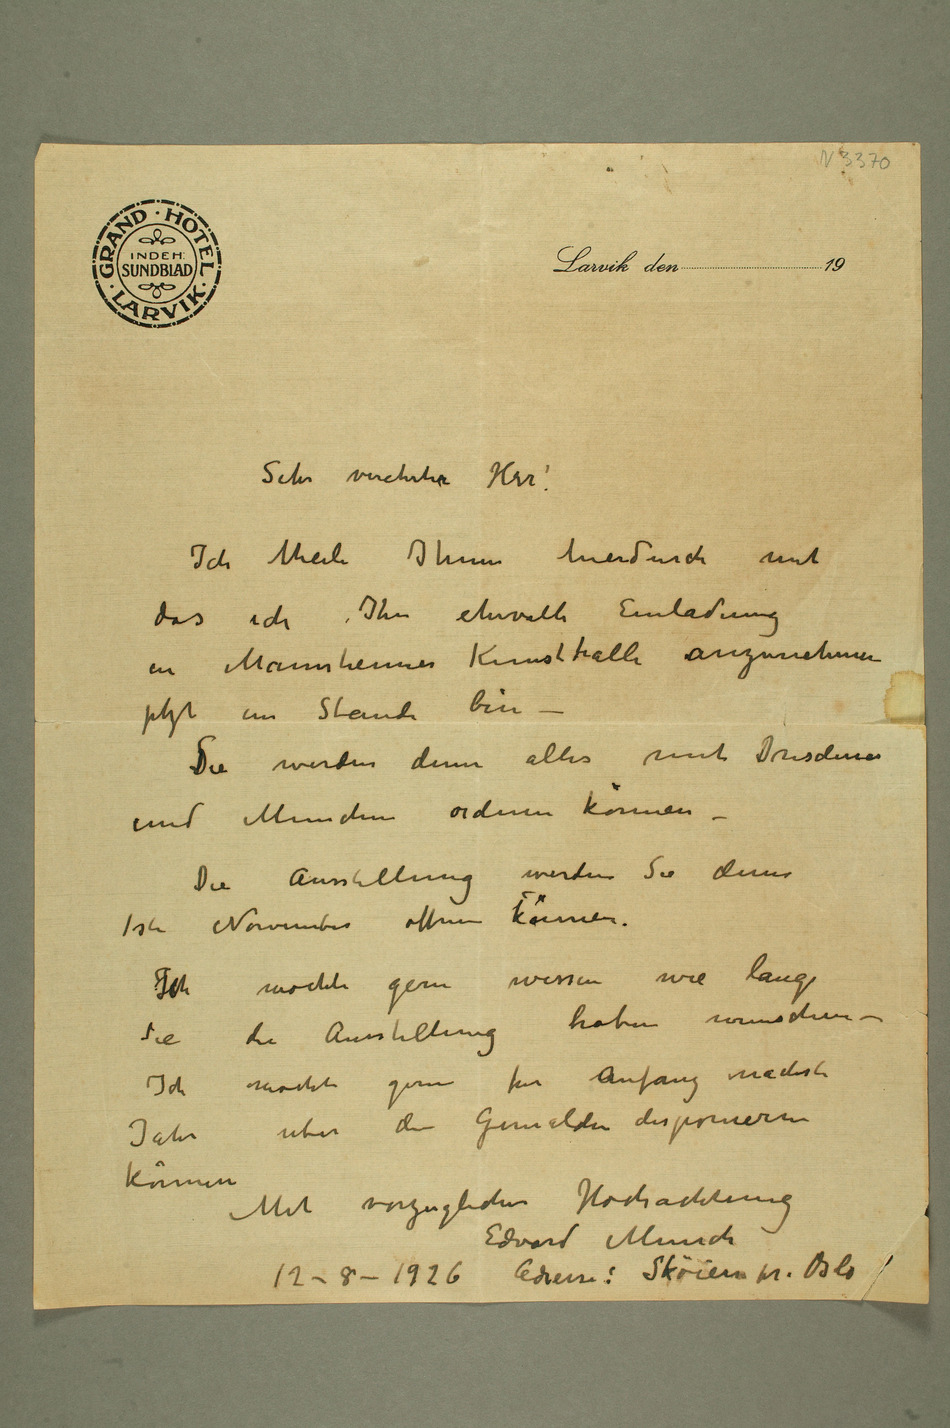 N 3370
GRAND · HOTEL · LARVIK ·
INDEH:
SUNDBLAD
Larvik den 19
Sehr verehrter Herr!
Ich theile Ihnen hierdurch mit
das ich Ihre ehrvolle Einladung
in Mannheimer Kunsthalle anzunehmen
jetzt im Stande bin –
Sie werden denn alles mit Dresdener
und Munchen ordnen können –
Die Ausstellung werden Sie denn
1ste November offnen können.
Ich mochte gern wissen wie lange
Sie die Ausstellung haben wunschen –
Ich mochte gern fur Anfang nachste
Jahr uber die Gemalden disponieren
können
Mit vorzuglicher Hochachtung
Edvard Munch
12 – 8 – 1926 Adresse: Skøien pr. Oslo